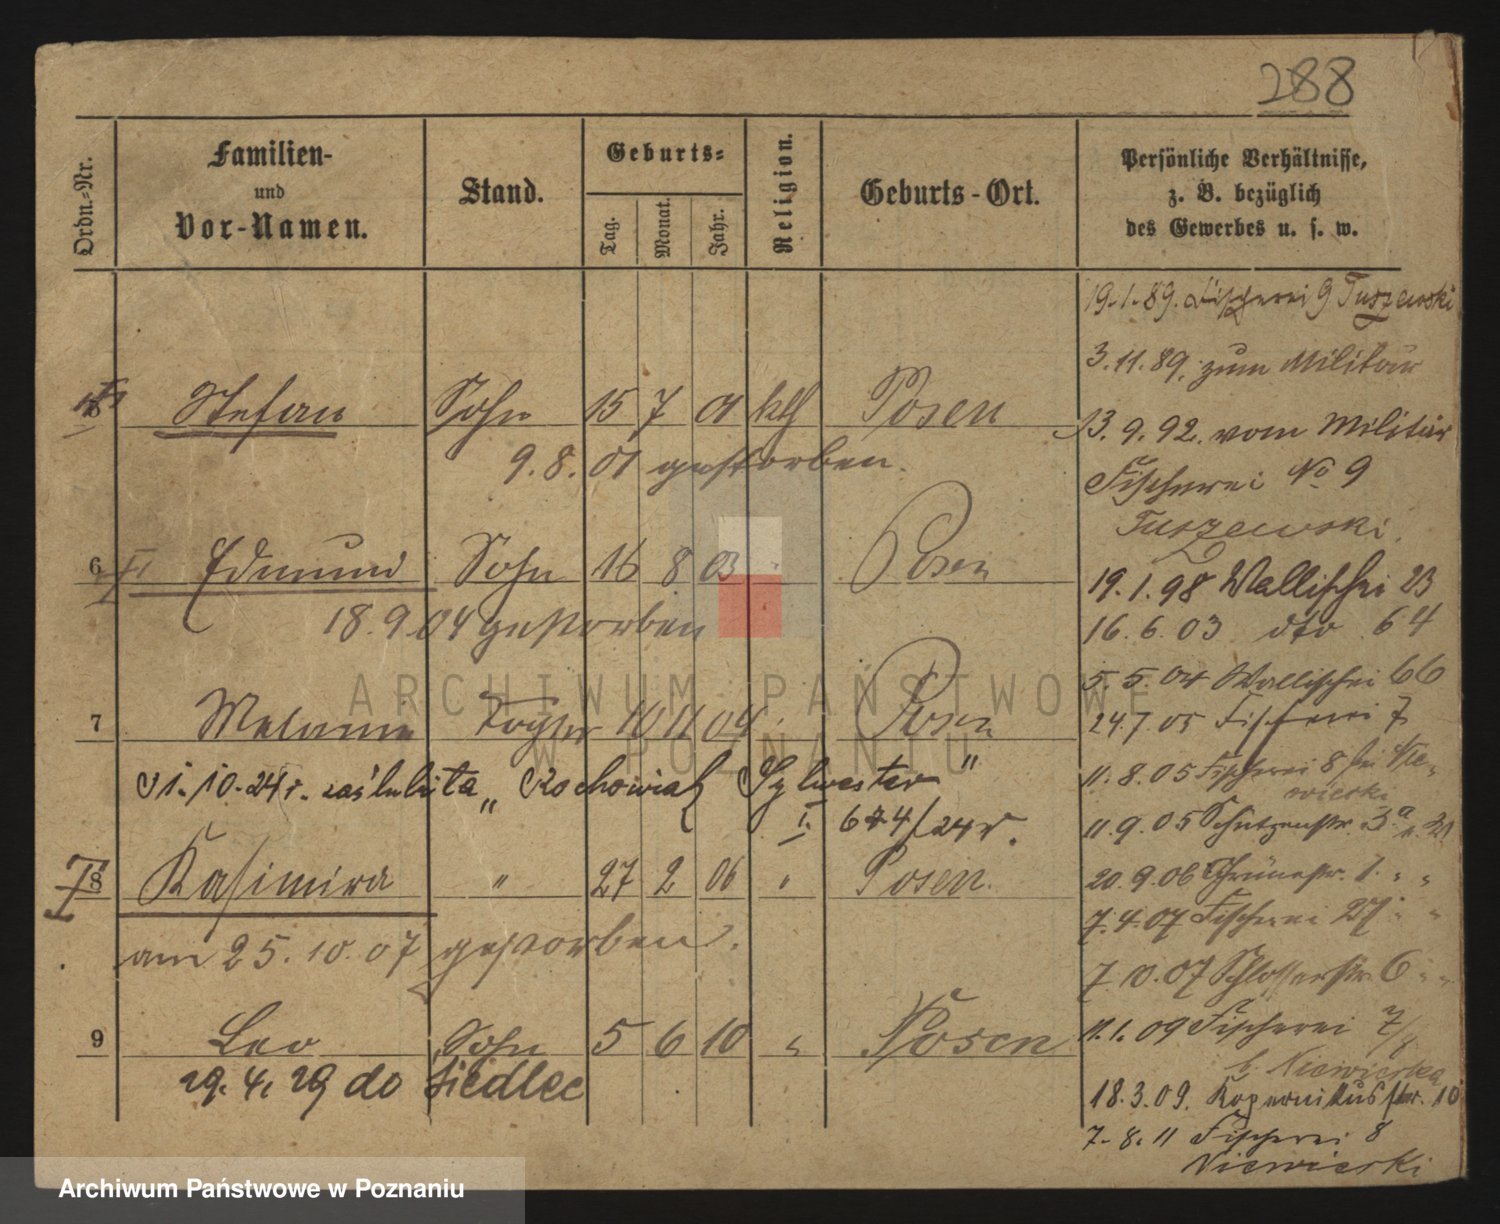 288
Ordn.-Nr.
Familien-
und
Vor-Namen.
Stand.
Geburts-
Tag.
Monat.
Jahr.
Religion.
Geburts-Ort.
Persönliche Verhältnisse,
z. B. bezüglich
des Gewerbes u. s. w.
19.1.89. Fischerei 9 Tuszewski
3.11.89. zum Militär
Stefan Sohn 15 7 01 kth Posen
13.9.92. vom Militär
9.8.01 gestorben.
Fischerei No 9
Tuszewski.
6 Edmund Sohn 16 8 03 " Posen
19.1.98 Wallischei 23
18.9.04 gestorben
16.6.03 dto 64
5.5.04 Wallischei 66
7 Melanie Tochter 10 11 04 Posen
24.7.05 Fischerei 7
31.10.24 r. zaślubiła „Rochowiak Sylwester"
11.8.05 Fischerei 8 bei Nie-
wierski
I. 674/24 r.
11.9.05 Schützenstr. 3a
8 Kasimira " 27 2 06 " Posen.
20.9.06 Grünestr. 1. " "
7.4.07 Fischerei 27 " "
am 25.10.07 gestorben.
7.10.07 Schlosserstr. 6 " "
9 Leo Sohn 5 6 10 " Posen
11.1.09 Fischerei 7/8
b. Niewierska
29.4.29 do Siedlec
18.3.09. Kopernikusstr. 10
7.8.11 Fischerei 8
Niewierski
ARCHIWUM PAŃSTWOWE
W POZNANIU
Archiwum Państwowe w Poznaniu